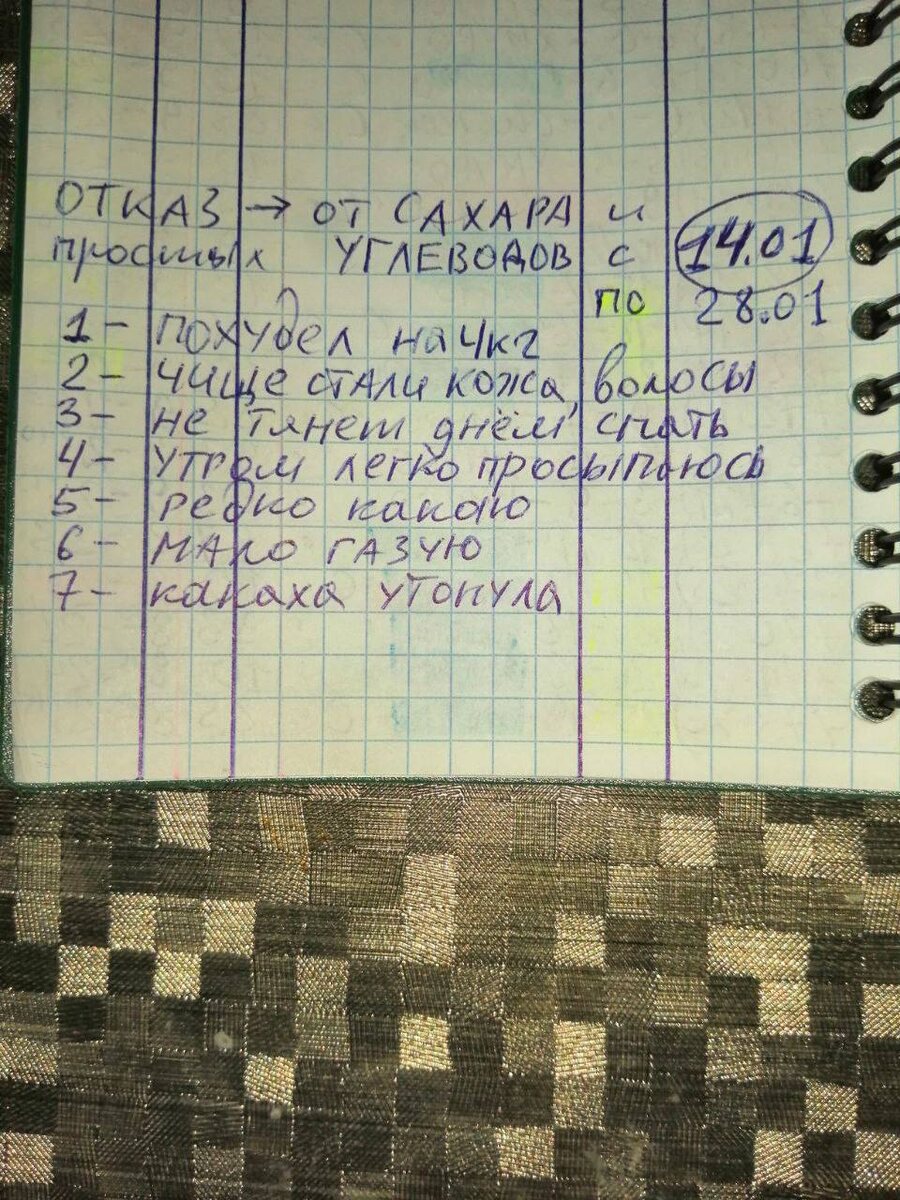 ОТКАЗ → ОТ САХАРА и
простых УГЛЕВОДОВ с 14.01
по 28.01
1 - похудел на 4кг
2 - чище стали кожа, волосы
3 - не тянет днём спать
4 - утром легко просыпаюсь
5 - редко какаю
6 - мало газую
7 - какаха утонула